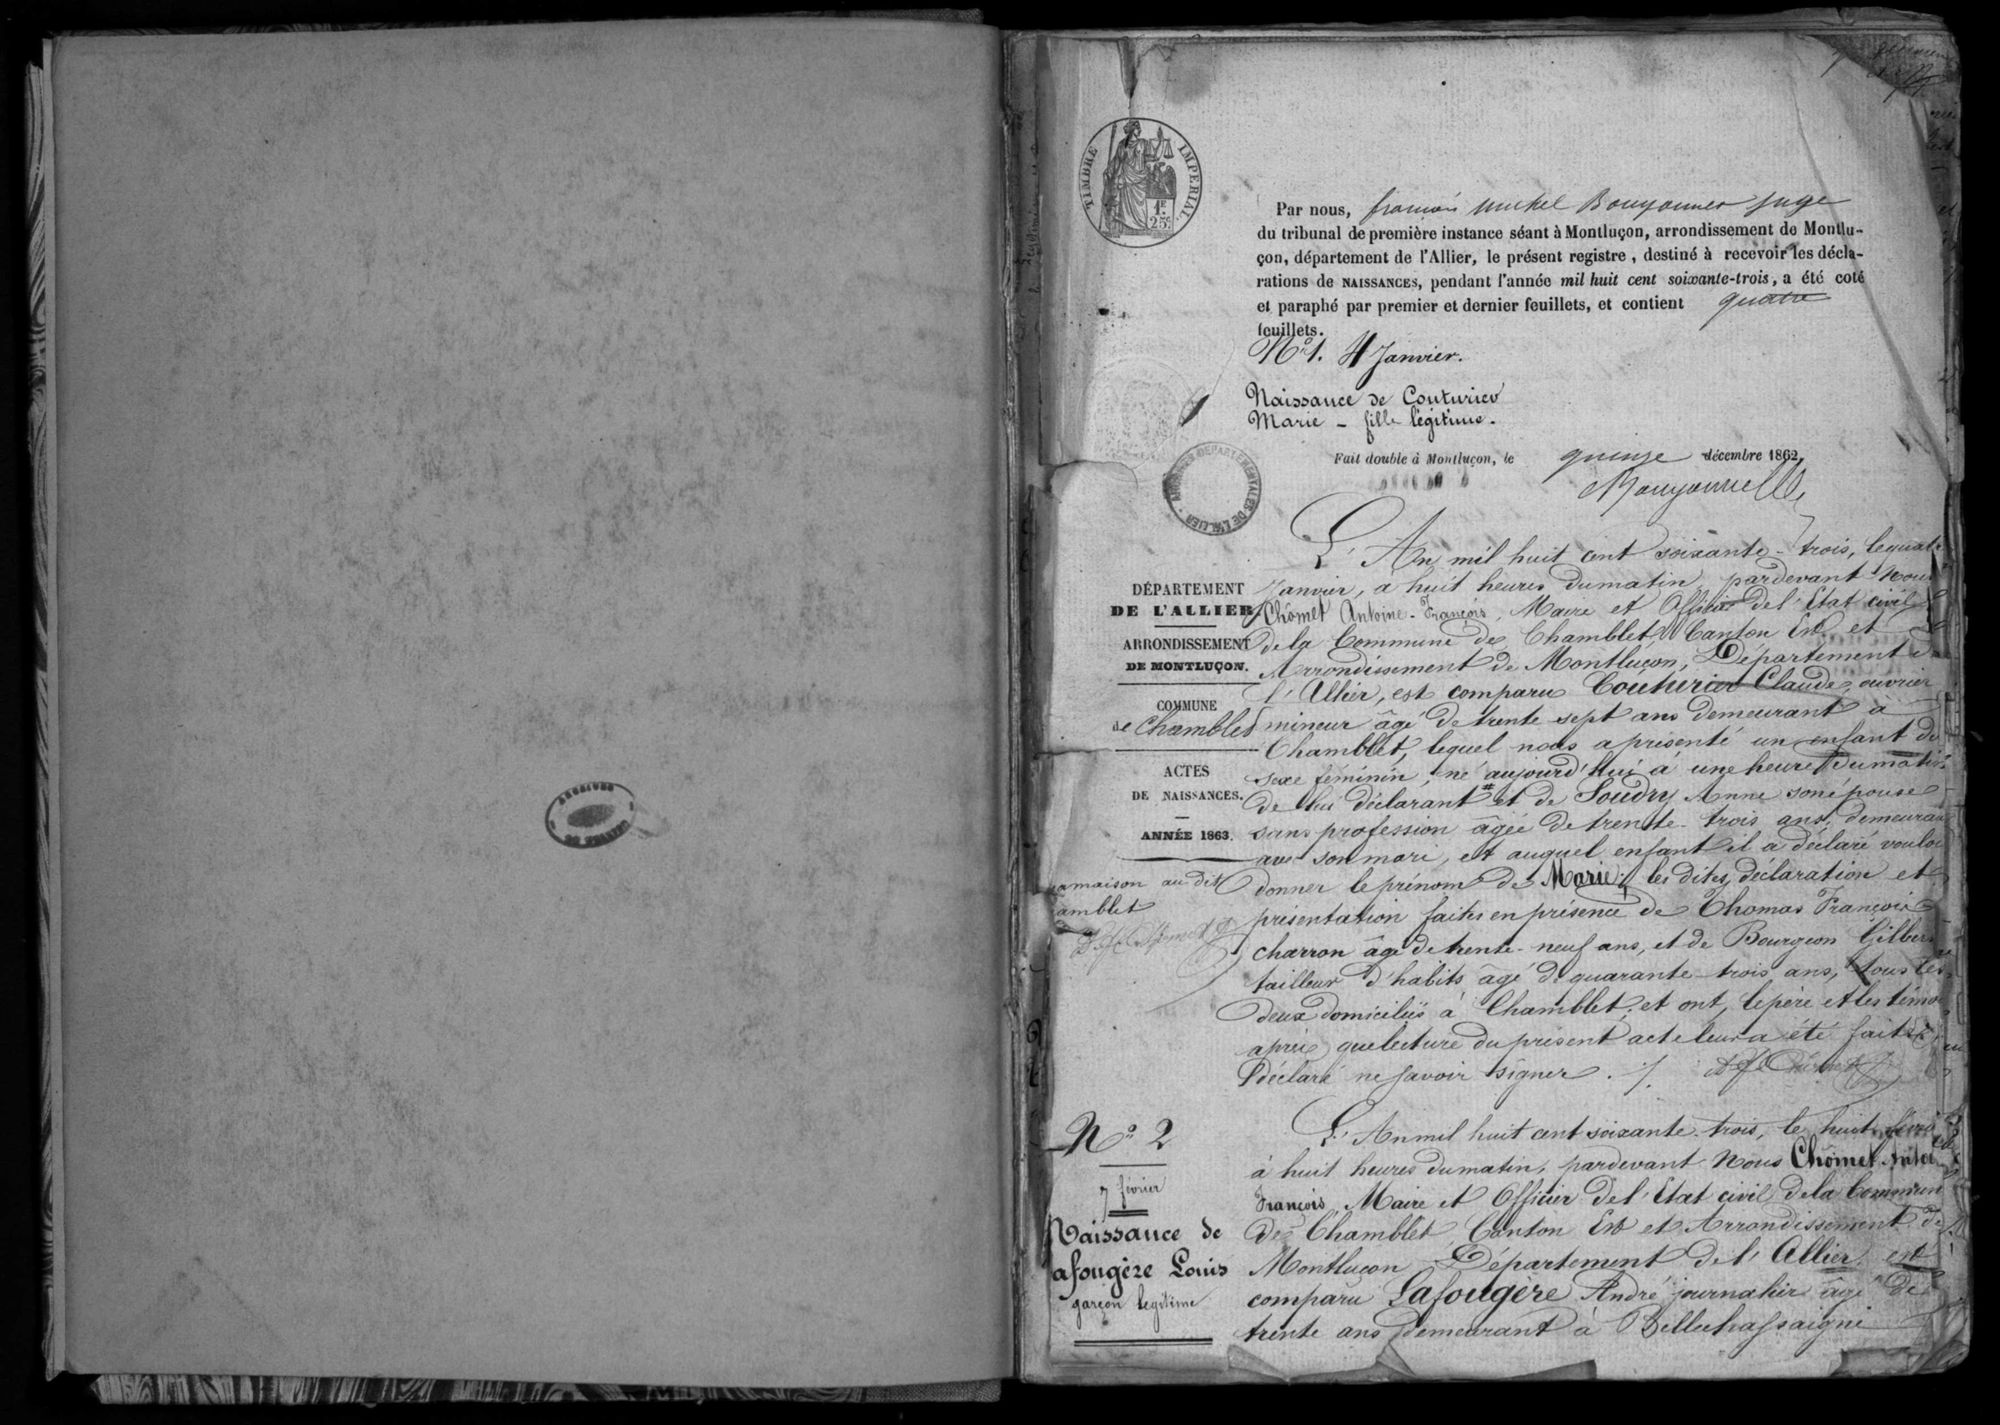 TIMBRE IMPERIAL
1F
25c
Par nous, françois Michel Bouyonnet Juge
du tribunal de première instance séant à Montluçon, arrondissement de Montlu-
çon, département de l'Allier, le présent registre, destiné à recevoir les décla-
rations de NAISSANCES, pendant l'année mil huit cent soixante-trois, a été coté
et paraphé par premier et dernier feuillets, et contient quatre
feuillets.
No 1. 4 Janvier.
Naissance de Couturier
Marie - fille légitime.
Fait double à Montluçon, le quinze décembre 1862,
ARCHIVES DÉPARTEMENTALES DE L'ALLIER
DÉPARTEMENT
DE L'ALLIER
ARRONDISSEMENT
DE MONTLUÇON.
COMMUNE
de Chamblet
ACTES
DE NAISSANCES.
ANNÉE 1863.
L'An mil huit cent soixante-trois, le quat
Janvier, à huit heures du matin, pardevant Nous
Chômet Antoine-François, Maire et Officier de l'Etat civil
de la Commune de Chamblet, Canton Est et
Arrondissement de Montluçon, Département de
l'Allier, est comparu Couturier Claude, ouvrier
mineur âgé de trente sept ans demeurant à
Chamblet, lequel nous a présenté un enfant du
sexe féminin, né aujourd'hui à une heure du matin
de lui déclarant # et de Soudry Anne son épouse
sans profession âgée de trente-trois ans, demeuran
avec son mari, et auquel enfant il a déclaré vouloi
donner le prénom de Marie; les dites déclaration et
présentation faites en présence de Thomas François
charron âgé de trente-neuf ans, et de Bourgeon Gilber
tailleur d'habits âgé de quarante-trois ans, tous les
deux domiciliés à Chamblet; et ont, le père et les témo
après que lecture du présent acte leur a été faite,
déclaré ne savoir signer ./.
amaison au dit
amblet
No 2
7 février
Naissance de
afougère Louis
garçon légitime
L'An mil huit cent soixante-trois, le huit févri
à huit heures du matin, pardevant Nous Chômet Antoi
François, Maire et Officier de l'Etat civil de la Commun
de Chamblet, Canton Est et Arrondissement de
Montluçon, Département de l'Allier, est
comparu Lafougère André journalier âgé de
trente ans demeurant à Bellechassaigne